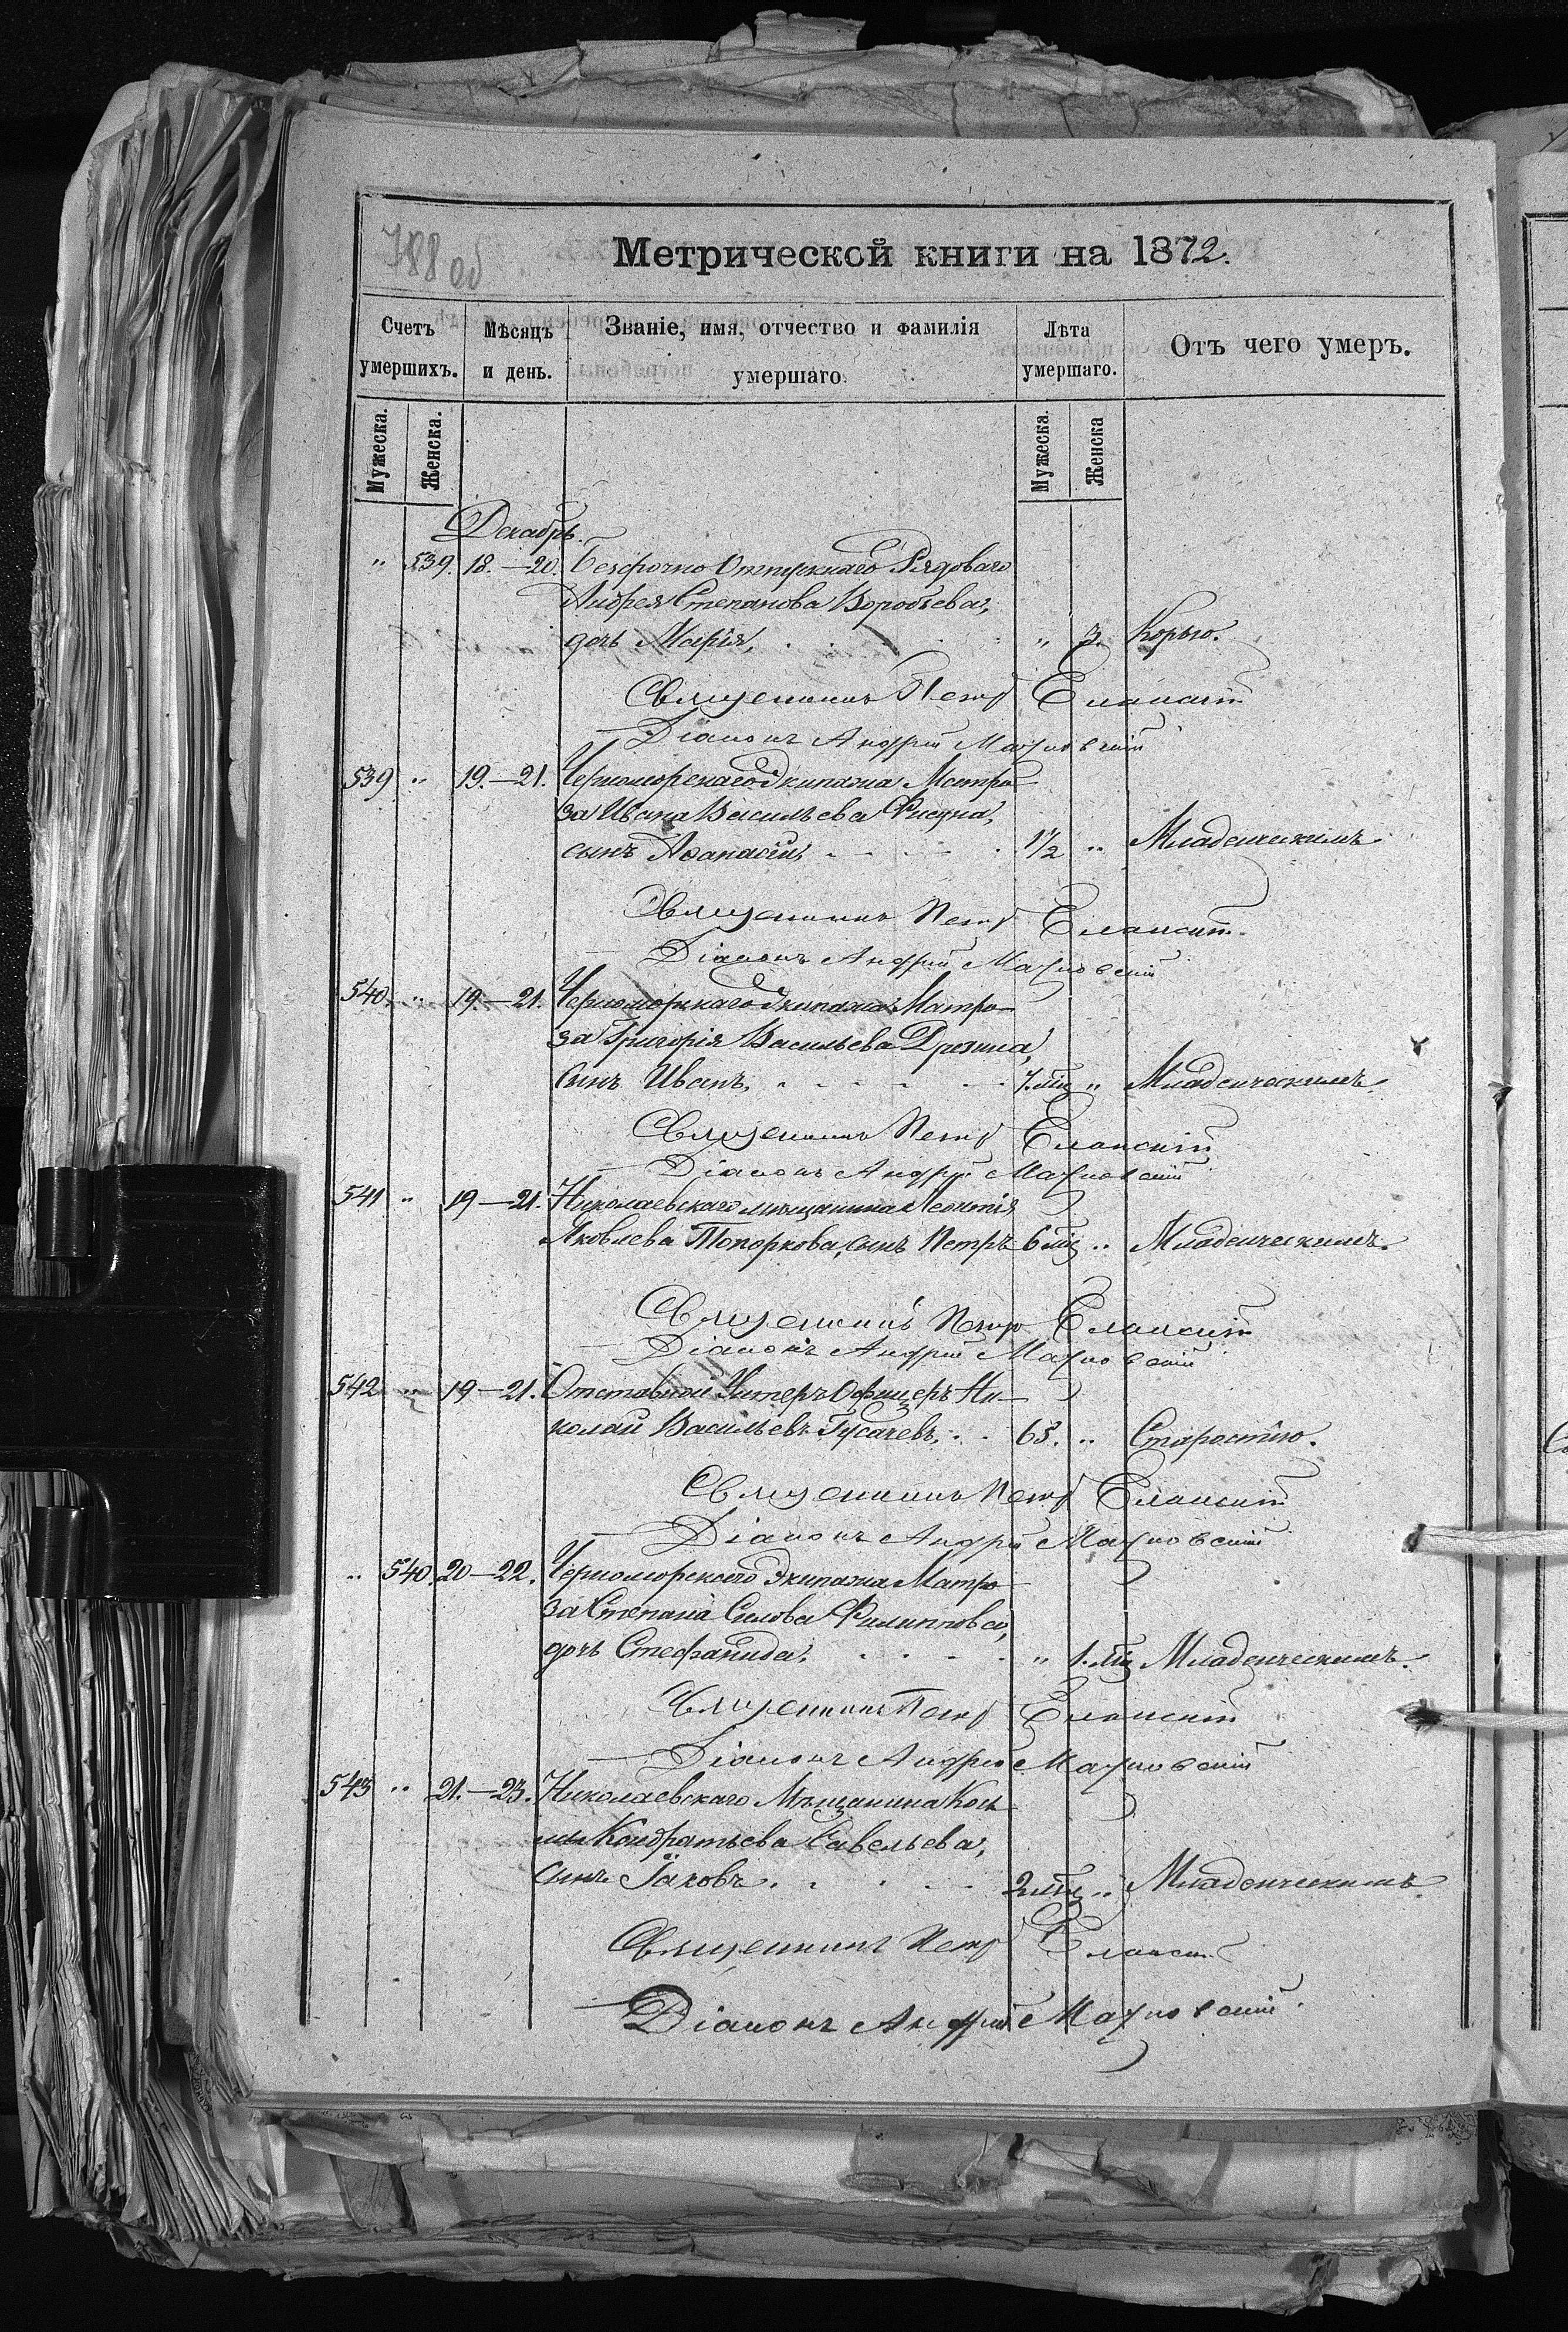 788 об
Метрической книги на 1872.
Счетъ умершихъ.
Мѣсяцъ и день.
Званіе, имя, отчество и фамилія умершаго.
Лѣта умершаго.
Отъ чего умеръ.
Мужеска.
Женска.
Мужеска.
Женска
Декабрь.
" 539. 18.—20. Безсрочно Отпускнаго Рядоваго
Андрея Степанова Воробьева,
дочь Марія, . . . " 3. Корью.
Священникъ Петръ Еланскій
Діаконъ Андрей Махновскій
539 " 19.—21. Черноморскаго Экипажа Матро-
за Ивана Васильева
сынъ Аѳанасій, - - - - 1½ " Младенческимъ
Священникъ Петръ Еланскій
Діаконъ Андрей Махновскій
540 " 19.—21. Черноморскаго Экипажа Матро-
за Григорія Васильева Дрозина,
сынъ Иванъ, - - - - - 7.мц " Младенческимъ
Священникъ Петръ Еланскій
Діаконъ Андрей Махновскій
541 " 19—21. Николаевскаго мѣщанина Леонтія
Яковлева Топоркова, сынъ Петръ 6 мц " Младенческимъ.
Священникъ Петръ Еланскій
Діаконъ Андрей Махновскій
542 " 19—21. Отставной Унтеръ Офицеръ Ни-
колай Васильевъ Гусачевъ, . . 63. " Старостію.
Священникъ Петръ Еланскій
Діаконъ Андрей Махновскій
" 540. 20—22. Черноморскаго Экипажа Матро-
за Степана Силова Филиппова,
дочь Стефанида. . . . . " 1.мц Младенческимъ.
Священникъ Петръ Еланскій
Діаконъ Андрей Махновскій
543 " 21.—23. Николаевскаго Мѣщанина Кось-
мы Кондратьева Савельева,
сынъ Іаковъ. . . - - 2 мц " Младенческимъ
Священникъ Петръ Еланскій
Діаконъ Андрей Махновскій